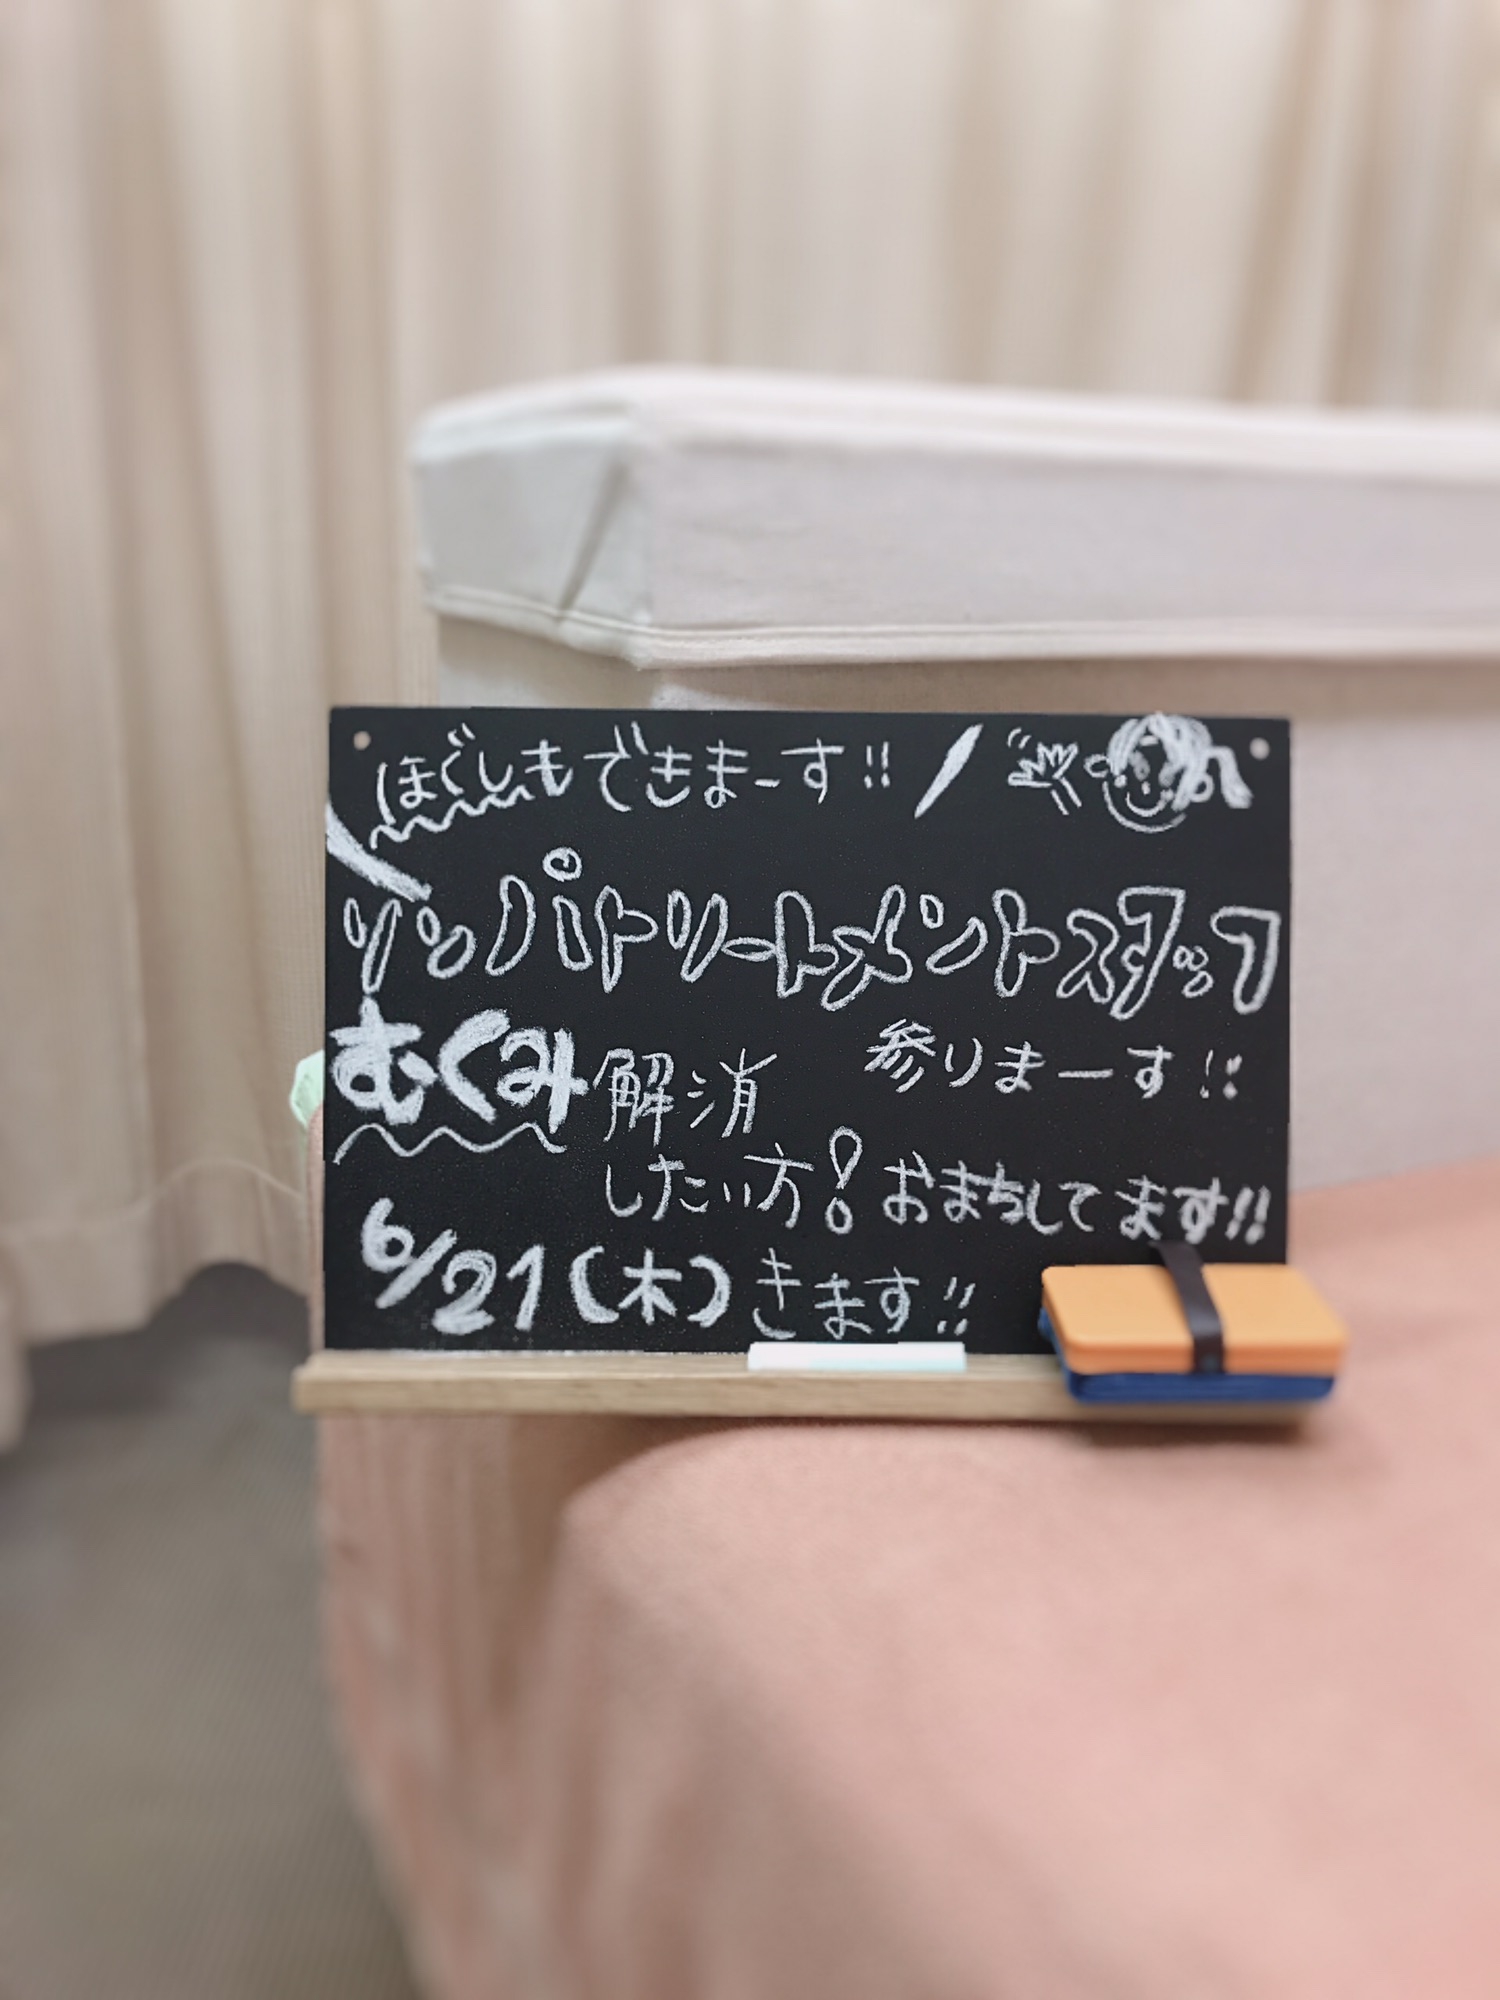 ほぐしもできまーす!!
リンパトリートメントスタッフ
参りまーす!!
むくみ解消
したい方! おまちしてます!!
6/21(木)きます!!